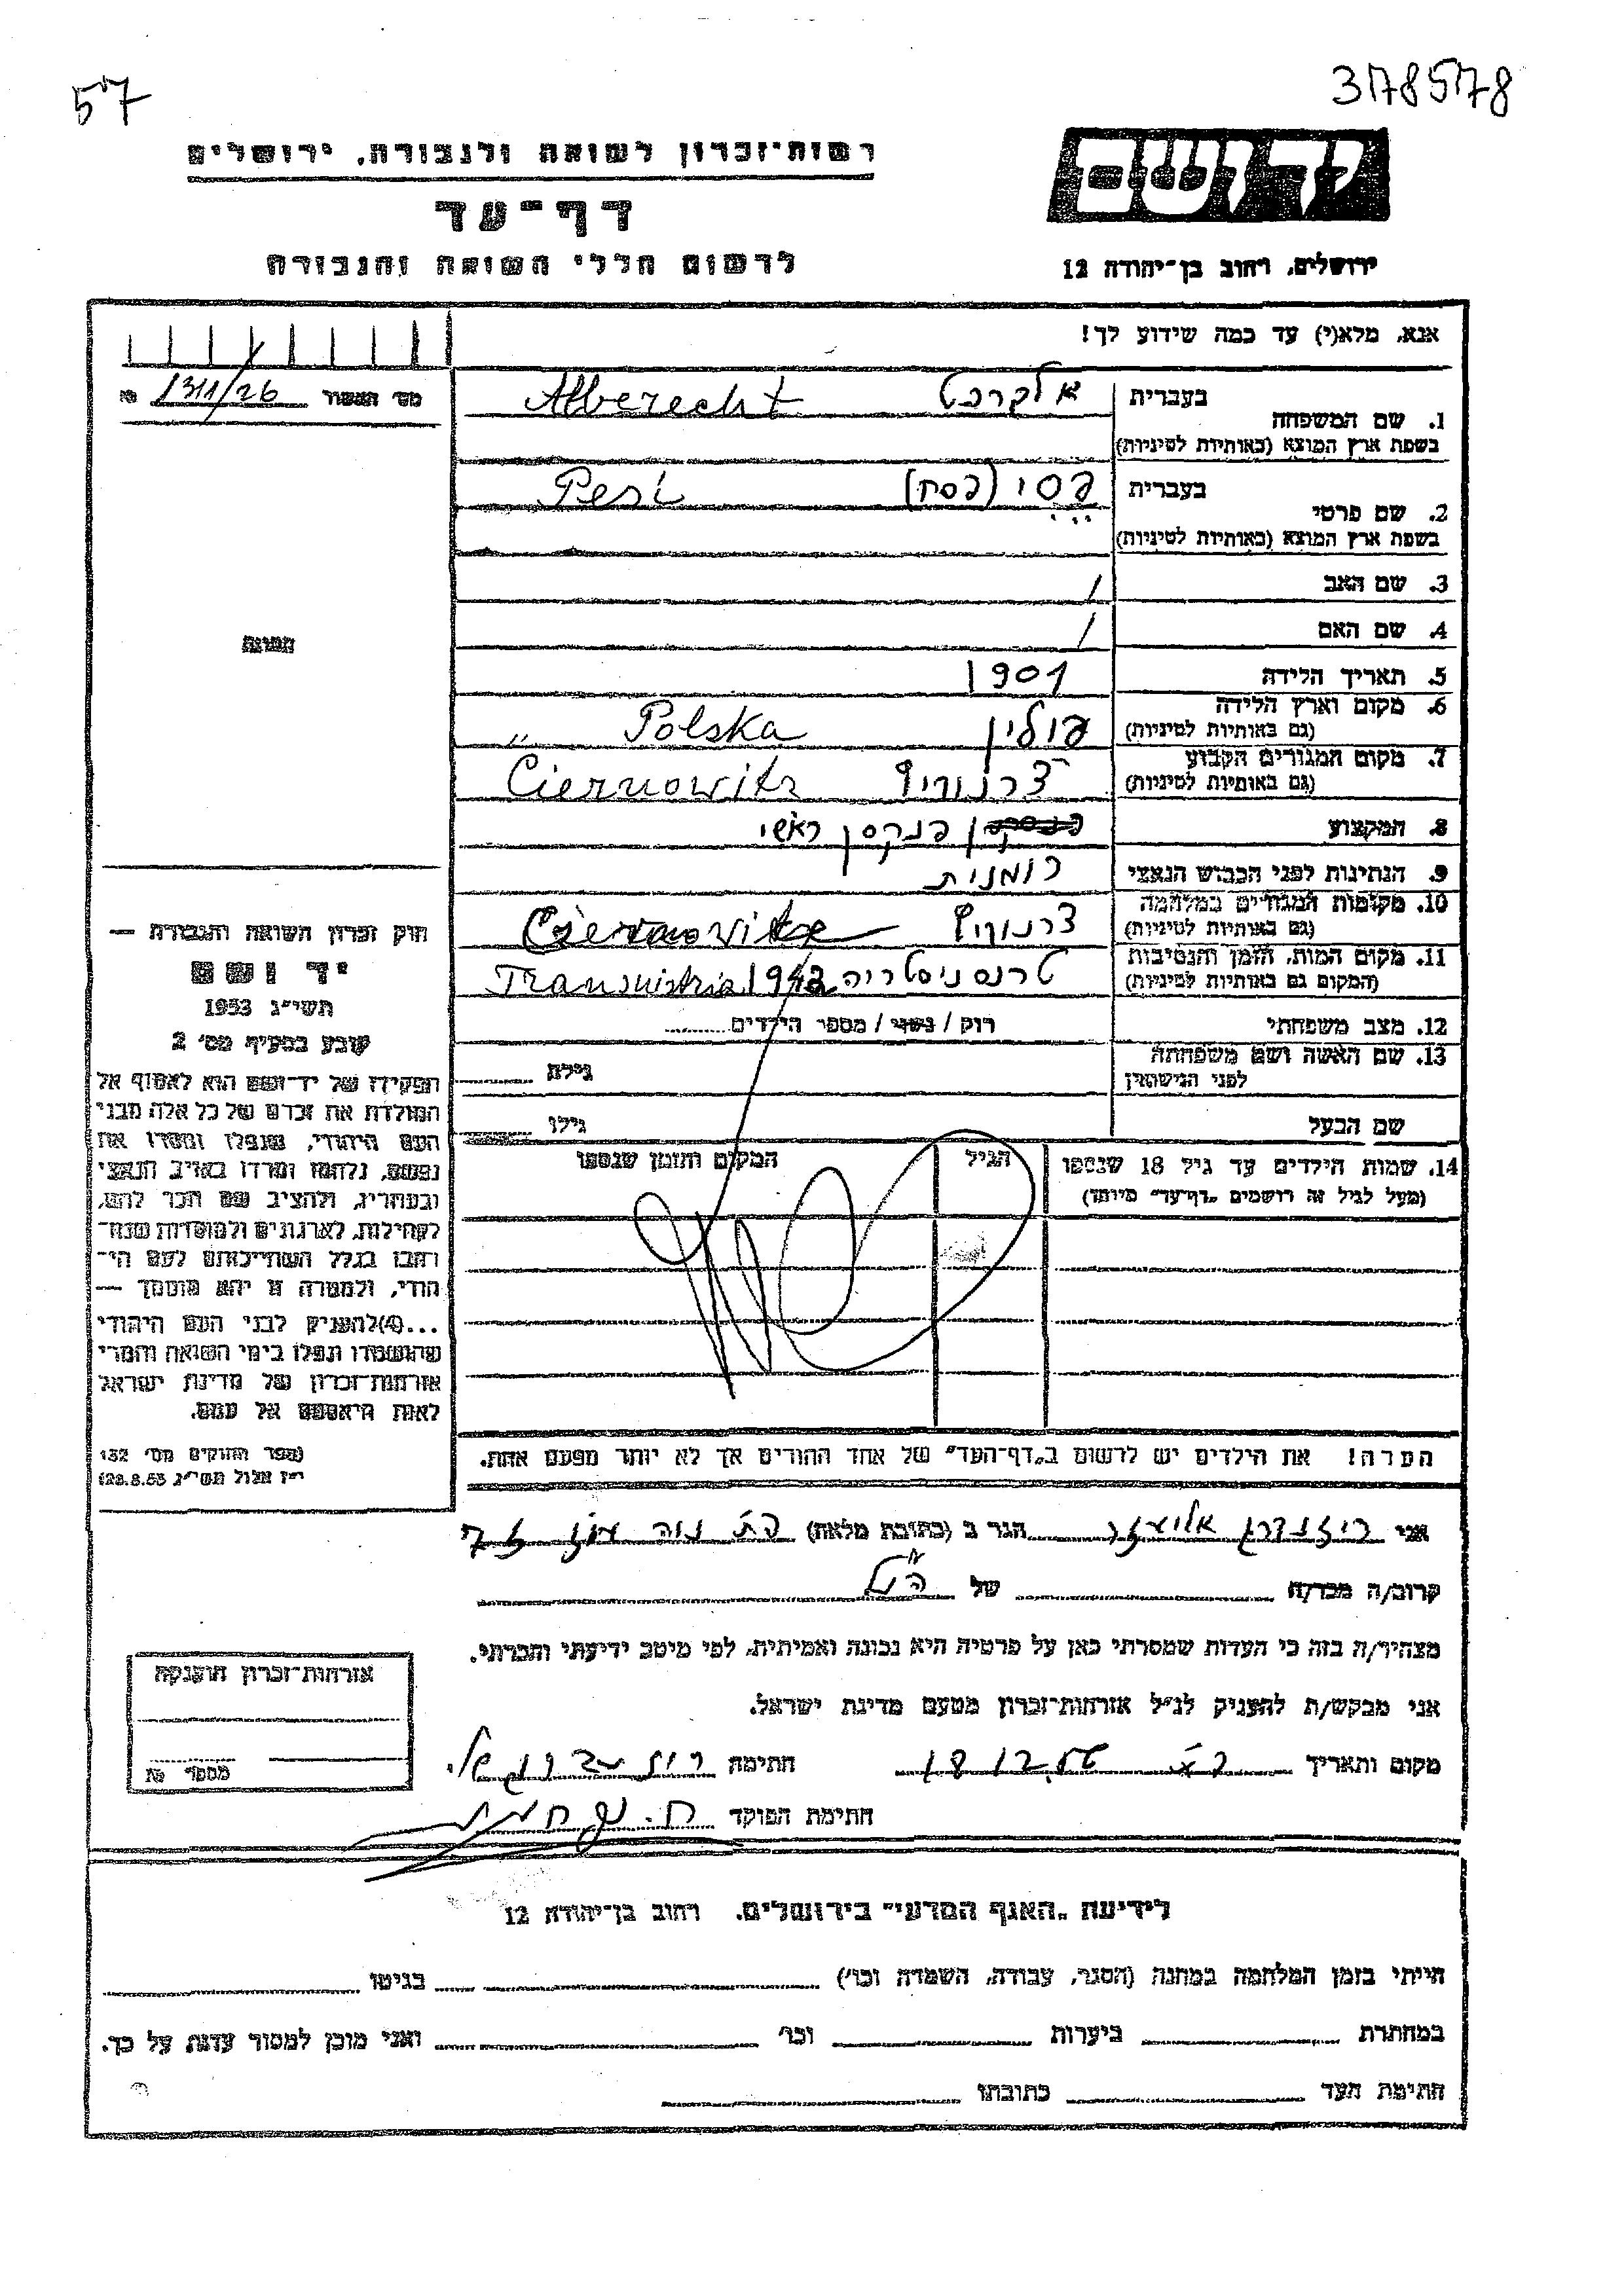 57
3178578
רשות־זכרון לשואה ולגבורה, ירושלים
דף־עד
לרשום חללי השואה והגבורה
ידושם
ירושלים, רחוב בן־יהודה 12
אנא, מלא(י) עד כמה שידוע לך!
מס' האשור 1311/26 №
1. שם המשפחה
בעברית אלברכט Alberecht
בשפת ארץ המוצא (באותיות לטיניות)
2. שם פרטי
בעברית פסי (פסח) Pesi
בשפת ארץ המוצא (באותיות לטיניות)
3. שם האב /
4. שם האם /
תמונה
5. תאריך הלידה 1901
6. מקום וארץ הלידה
(גם באותיות לטיניות) פולין Polska "
7. מקום המגורים הקבוע
(גם באותיות לטיניות) צרנוויץ Ciernowitz
8. המקצוע פנקסן ראשי
9. הנתינות לפני הכבוש הנאצי רומנית
10. מקומות המגורים במלחמה
(גם באותיות לטיניות) צרנוויץ Ciernowitz
11. מקום המות, הזמן והנסיבות
(המקום גם באותיות לטיניות) טרנסניסטריה 1942 Transnistria
12. מצב משפחתי רוק / נשוי / מספר הילדים
13. שם האשה ושם משפחתה
לפני הנישואין גילה
שם הבעל גילו
14. שמות הילדים עד גיל 18 שנספו הגיל המקום והזמן שנספו
(מעל לגיל זה רושמים "דף־עד" מיוחד)
חוק זכרון השואה והגבורה —
יד ושם
תשי"ג 1953
קובע בסעיף מס' 2
תפקידו של יד־ושם הוא לאסוף אל
המולדת את זכרם של כל אלה מבני
העם היהודי, שנפלו ומסרו את
נפשם, נלחמו ומרדו באויב הנאצי
ובעוזריו, ולהציב שם וזכר להם,
לקהילות, לארגונים ולמוסדות שנח־
רבו בגלל השתייכותם לעם הי־
הודי, ולמטרה זו יהא מוסמך —
...(4)להעניק לבני העם היהודי
שהושמדו ונפלו בימי השואה והמרי
אזרחות־זכרון של מדינת ישראל
לאות היאספם אל עמם.
(ספר החוקים מס' 132
י"ז אלול תשי"ג 28.8.53)
הערה! את הילדים יש לרשום ב"דף־העד" של אחד ההורים אך לא יותר מפעם אחת.
אני אליעזר הגר ב (כתובת מלאה)
קרוב/ה מכר/ה של הנ"ל
מצהיר/ה בזה כי העדות שמסרתי כאן על פרטיה היא נכונה ואמיתית, לפי מיטב ידיעתי והכרתי.
אני מבקש/ת להעניק לנ"ל אזרחות־זכרון מטעם מדינת ישראל.
מקום ותאריך חתימה
חתימת הפוקד
אזרחות־זכרון הוענקה
מספר №
לידיעת "האגף המדעי" בירושלים, רחוב בן־יהודה 12
הייתי בזמן המלחמה במחנה (הסגר, עבודה, השמדה וכו') בגיטו
במחתרת ביערות וכו' ואני מוכן למסור עדות על כך.
חתימת העד כתובתו